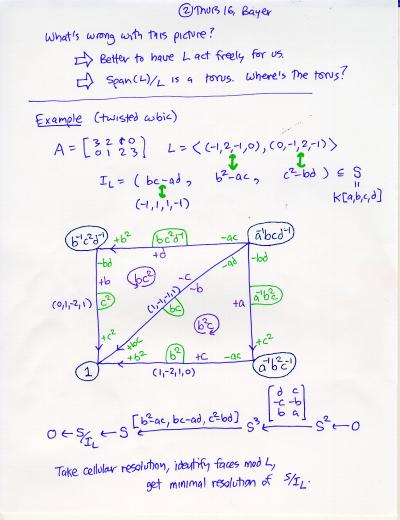 ② Thurs 16, Bayer
What's wrong with this picture?
⇒ Better to have L act freely for us.
⇒ Span(L)/L is a torus. Where's the torus?
Example (twisted cubic)
A = [3 2 1 0
0 1 2 3] L = <(-1,2,-1,0), (0,-1,2,-1)>
I_L = (bc-ad, b²-ac, c²-bd) ⊆ S
(-1,1,1,-1) = K[a,b,c,d]
b⁻¹c²d⁻¹ +b² bc²d⁻¹ -ac a⁻¹bcd⁻¹
+d
-bd -ad -bd
+b bc² -c
(0,1,-2,1) c² (1,-1,-1,1) -b +a a⁻¹b²c
bc
b²c
+c² +bc +c²
+b² b² +c -ac
1 (1,-2,1,0) a⁻¹b²c⁻¹
[d c
-c -b
b a]
0 ← S/I_L ← S ← [b²-ac, bc-ad, c²-bd] S³ ← S² ← 0
Take cellular resolution, identify faces mod L,
get minimal resolution of S/I_L.